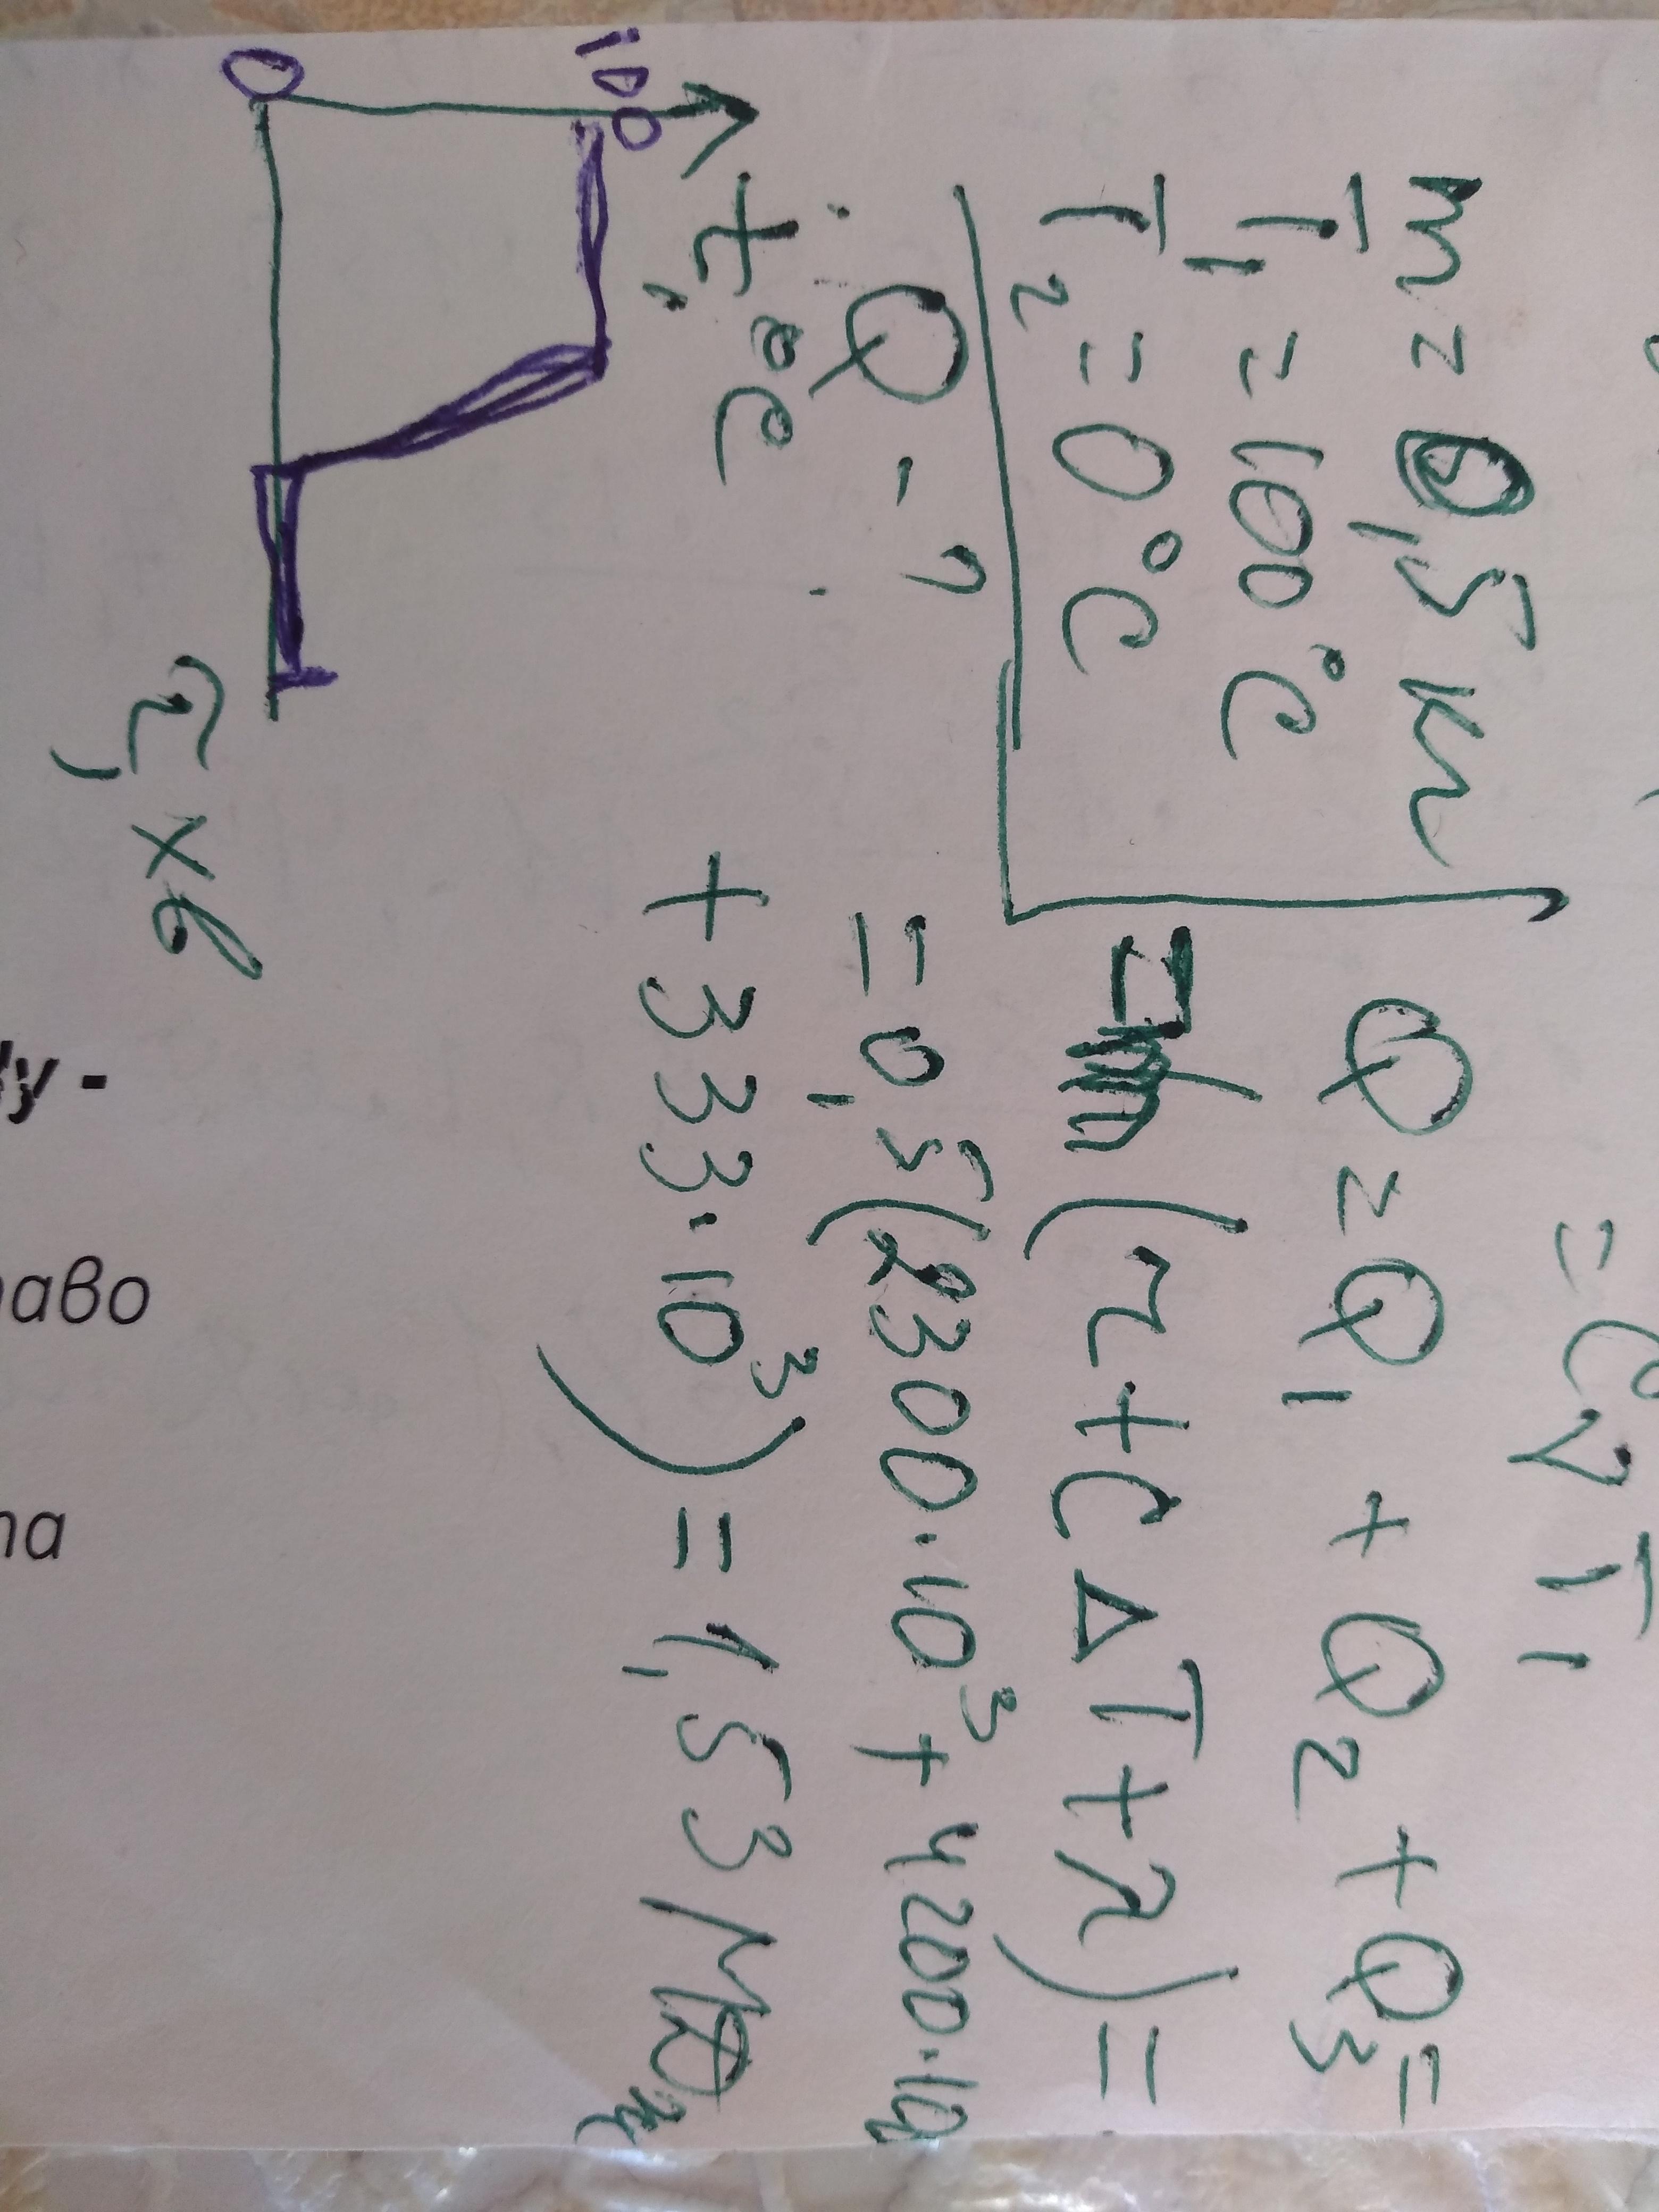 = CνT₁
m = 0,5 кг
T₁ = 100°C
T₂ = 0°C
Q - ?
Q = Q₁ + Q₂ + Q₃ =
= m(r + CΔT + λ) =
= 0,5(2300·10³ + 4200·10
+ 333·10³) = 1,53 МДж
t, °C
100
0
аво
та